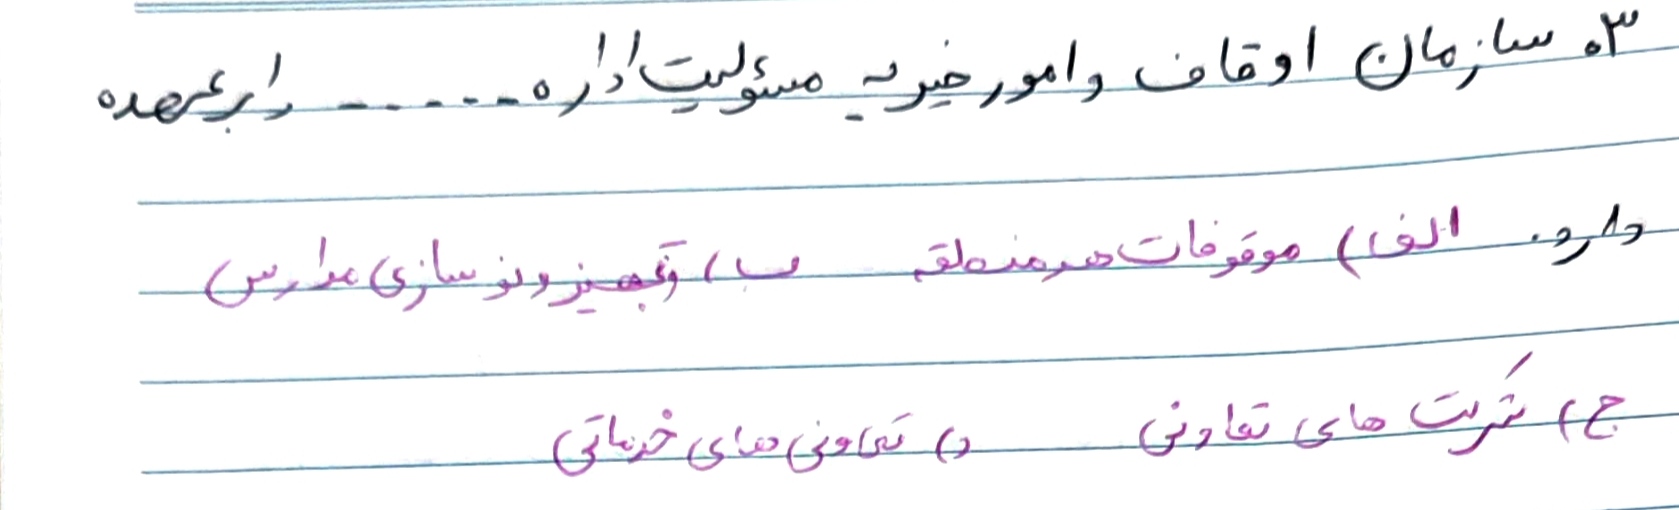 ۳. سازمان اوقاف و امور خیریه مسئولیت اداره ------ را برعهده
دارد. الف) موقوفات هر منطقه ب) تجهیز و نوسازی مدارس
ج) شرکت های تعاونی د) تعاونی های خدماتی